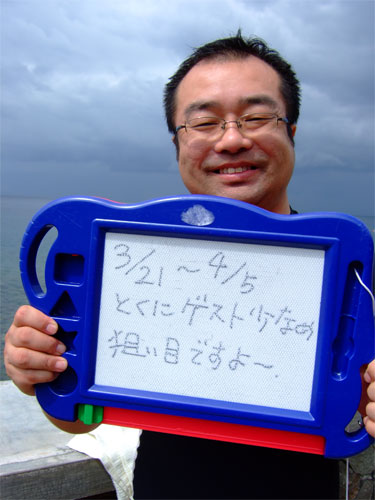 3/21～4/5
とくにゲスト少なめ
狙い目ですよ～.